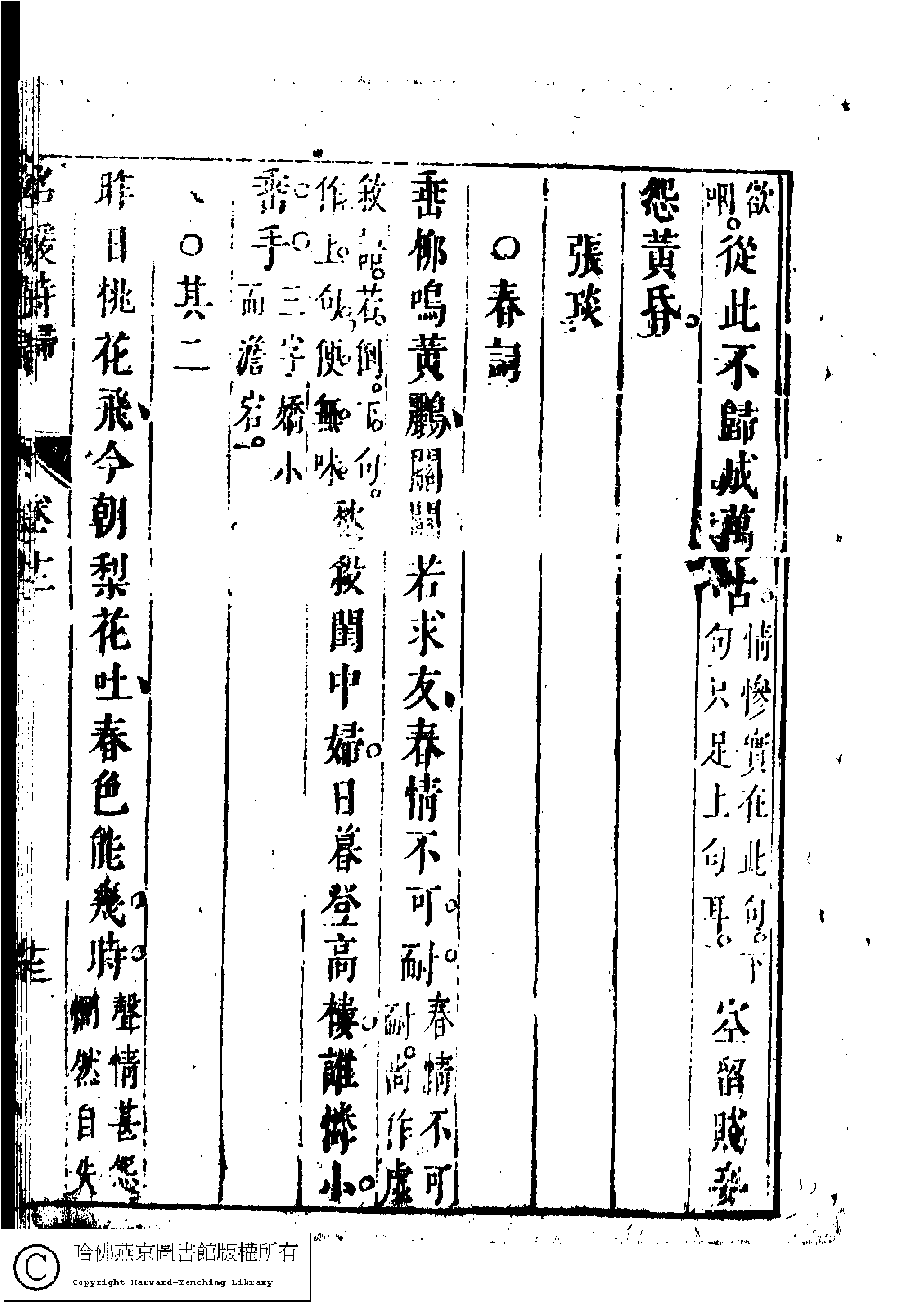 欲咽。從此不歸成萬古。情慘實在此句。下句只足上句耳。空留賤妾
怨黃昏。
張琰
○春詞
垂柳鳴黃鸝關關若求友春情不可耐春情不可耐。尚作虛
敘語。若倒下句。作上句便無味愁殺閨中婦。日暮登高樓誰憐小
垂手三字嬌小而澹宕。
○其二
昨日桃花飛今朝梨花吐春色能幾時聲情甚怨惘然自失
名媛詩歸
哈佛燕京圖書館版權所有
Copyright Harvard-Yenching Library